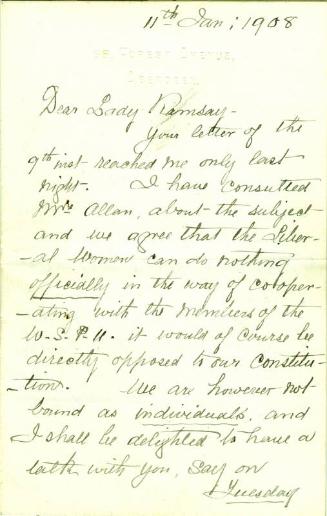 11th Jan; 1908
Forest Avenue,
Aberdeen.
Dear Lady Ramsay -
Your letter of the
9th inst reached me only last
night. I have consulted
Mrs Allan, about the subject
and we agree that the Liber-
-al Women can do nothing
officially in the way of cooper-
-ating with the members of the
W.S.P.U. it would of course be
directly opposed to our Constitu-
-tion. We are however not
bound as individuals, and
I shall be delighted to have a
talk with you, say on
Tuesday